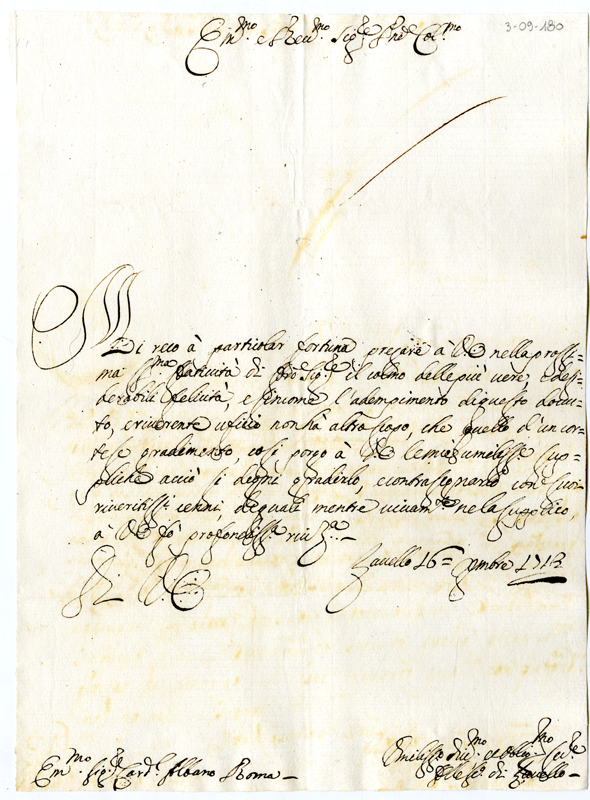 3-09-180
Em.mo e Rev.mo Sig.re P.ne Col.mo
Mi reco à particolar fortuna pregare à V.E. nella prossi=
ma S.ma Natività di Nro Sig.re il colmo delle più vere, e desi=
derabili felicità, e sincome l'adempimento di questo dovu=
to, e riverente ufficio non hà altro scopo, che quello d'un cor=
tese gradimento, cosi porgo à V.E. le mie umiliss.e sup=
pliche acciò si degni gradirlo, e contrasegnarlo con suoi
riveritiss.i cenni, de quali mentre vivam.te ne la supplico,
à V.E. fò profondiss.a riv.za
Di V.E.
Zavello 16= Xmbre 1713
Em.mo Sig.re Card.l Albano Roma
Umiliss.o Div.mo et Oblig.mo Ser.re
di Zavello